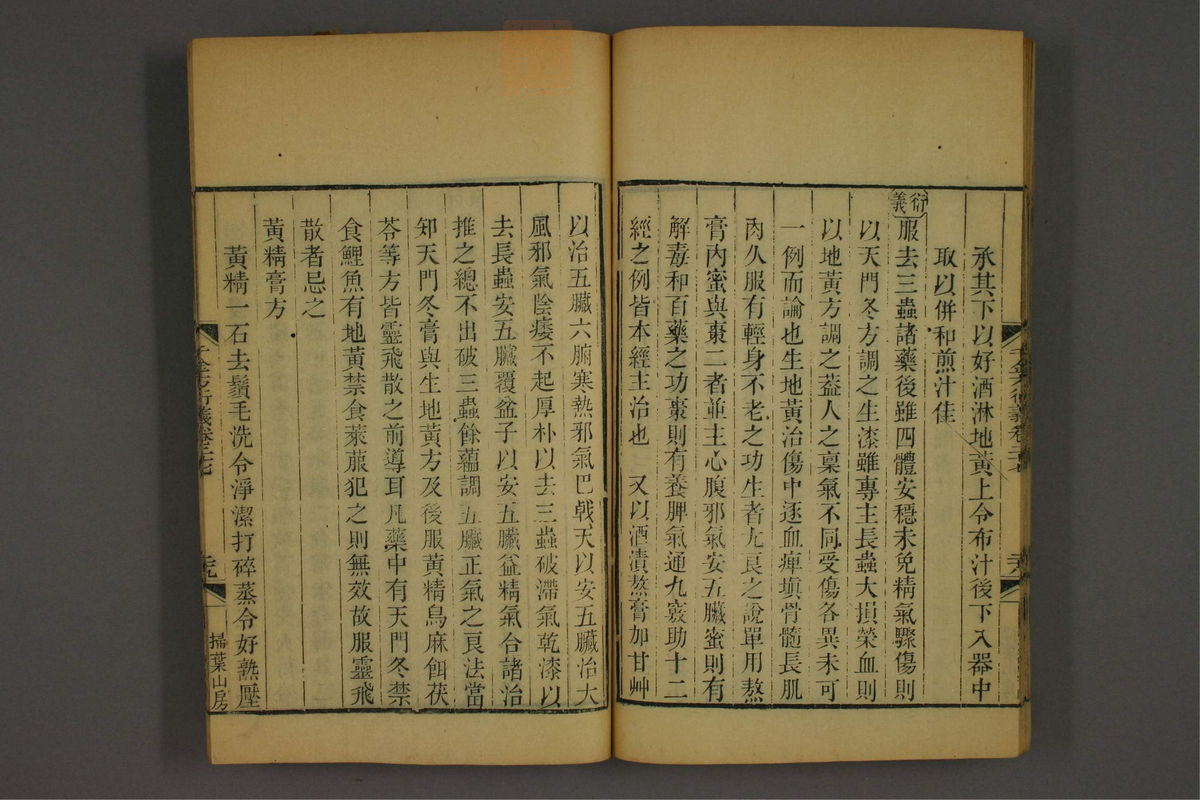 承其下以好酒淋地黃上令布汁後下入器中
取以併和煎汁佳
衍義
服去三蟲諸藥後雖四體安穩未免精氣驟傷則
以天門冬方調之生漆雖專主長蟲大損榮血則
以地黃方調之葢人之稟氣不同受傷各異未可
一例而論也生地黃治傷中逐血痺塡骨髓長肌
肉久服有輕身不老之功生者尢良之說單用熬
膏內蜜與棗二者並主心腹邪氣安五臟蜜則有
解毒和百藥之功棗則有養脾氣通九竅助十二
經之例皆本經主治也 又以酒漬熬膏加甘艸
以治五臟六腑寒熱邪氣巴戟天以安五臟治大
風邪氣陰痿不起厚朴以去三蟲破滯氣乾漆以
去長蟲安五臟覆盆子以安五臟益精氣合諸治
推之總不出破三蟲餘蘊調五臟正氣之良法當
知天門冬膏與生地黃方及後服黃精烏麻餌茯
苓等方皆靈飛散之前導耳凡藥中有天門冬禁
食鯉魚有地黃禁食萊菔犯之則無效故服靈飛
散者忌之
黃精膏方
黃精一石去鬚毛洗令淨潔打碎蒸令好熟壓
掃葉山房